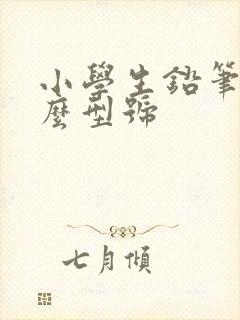 小學生鉛筆
麼型號
七月傾